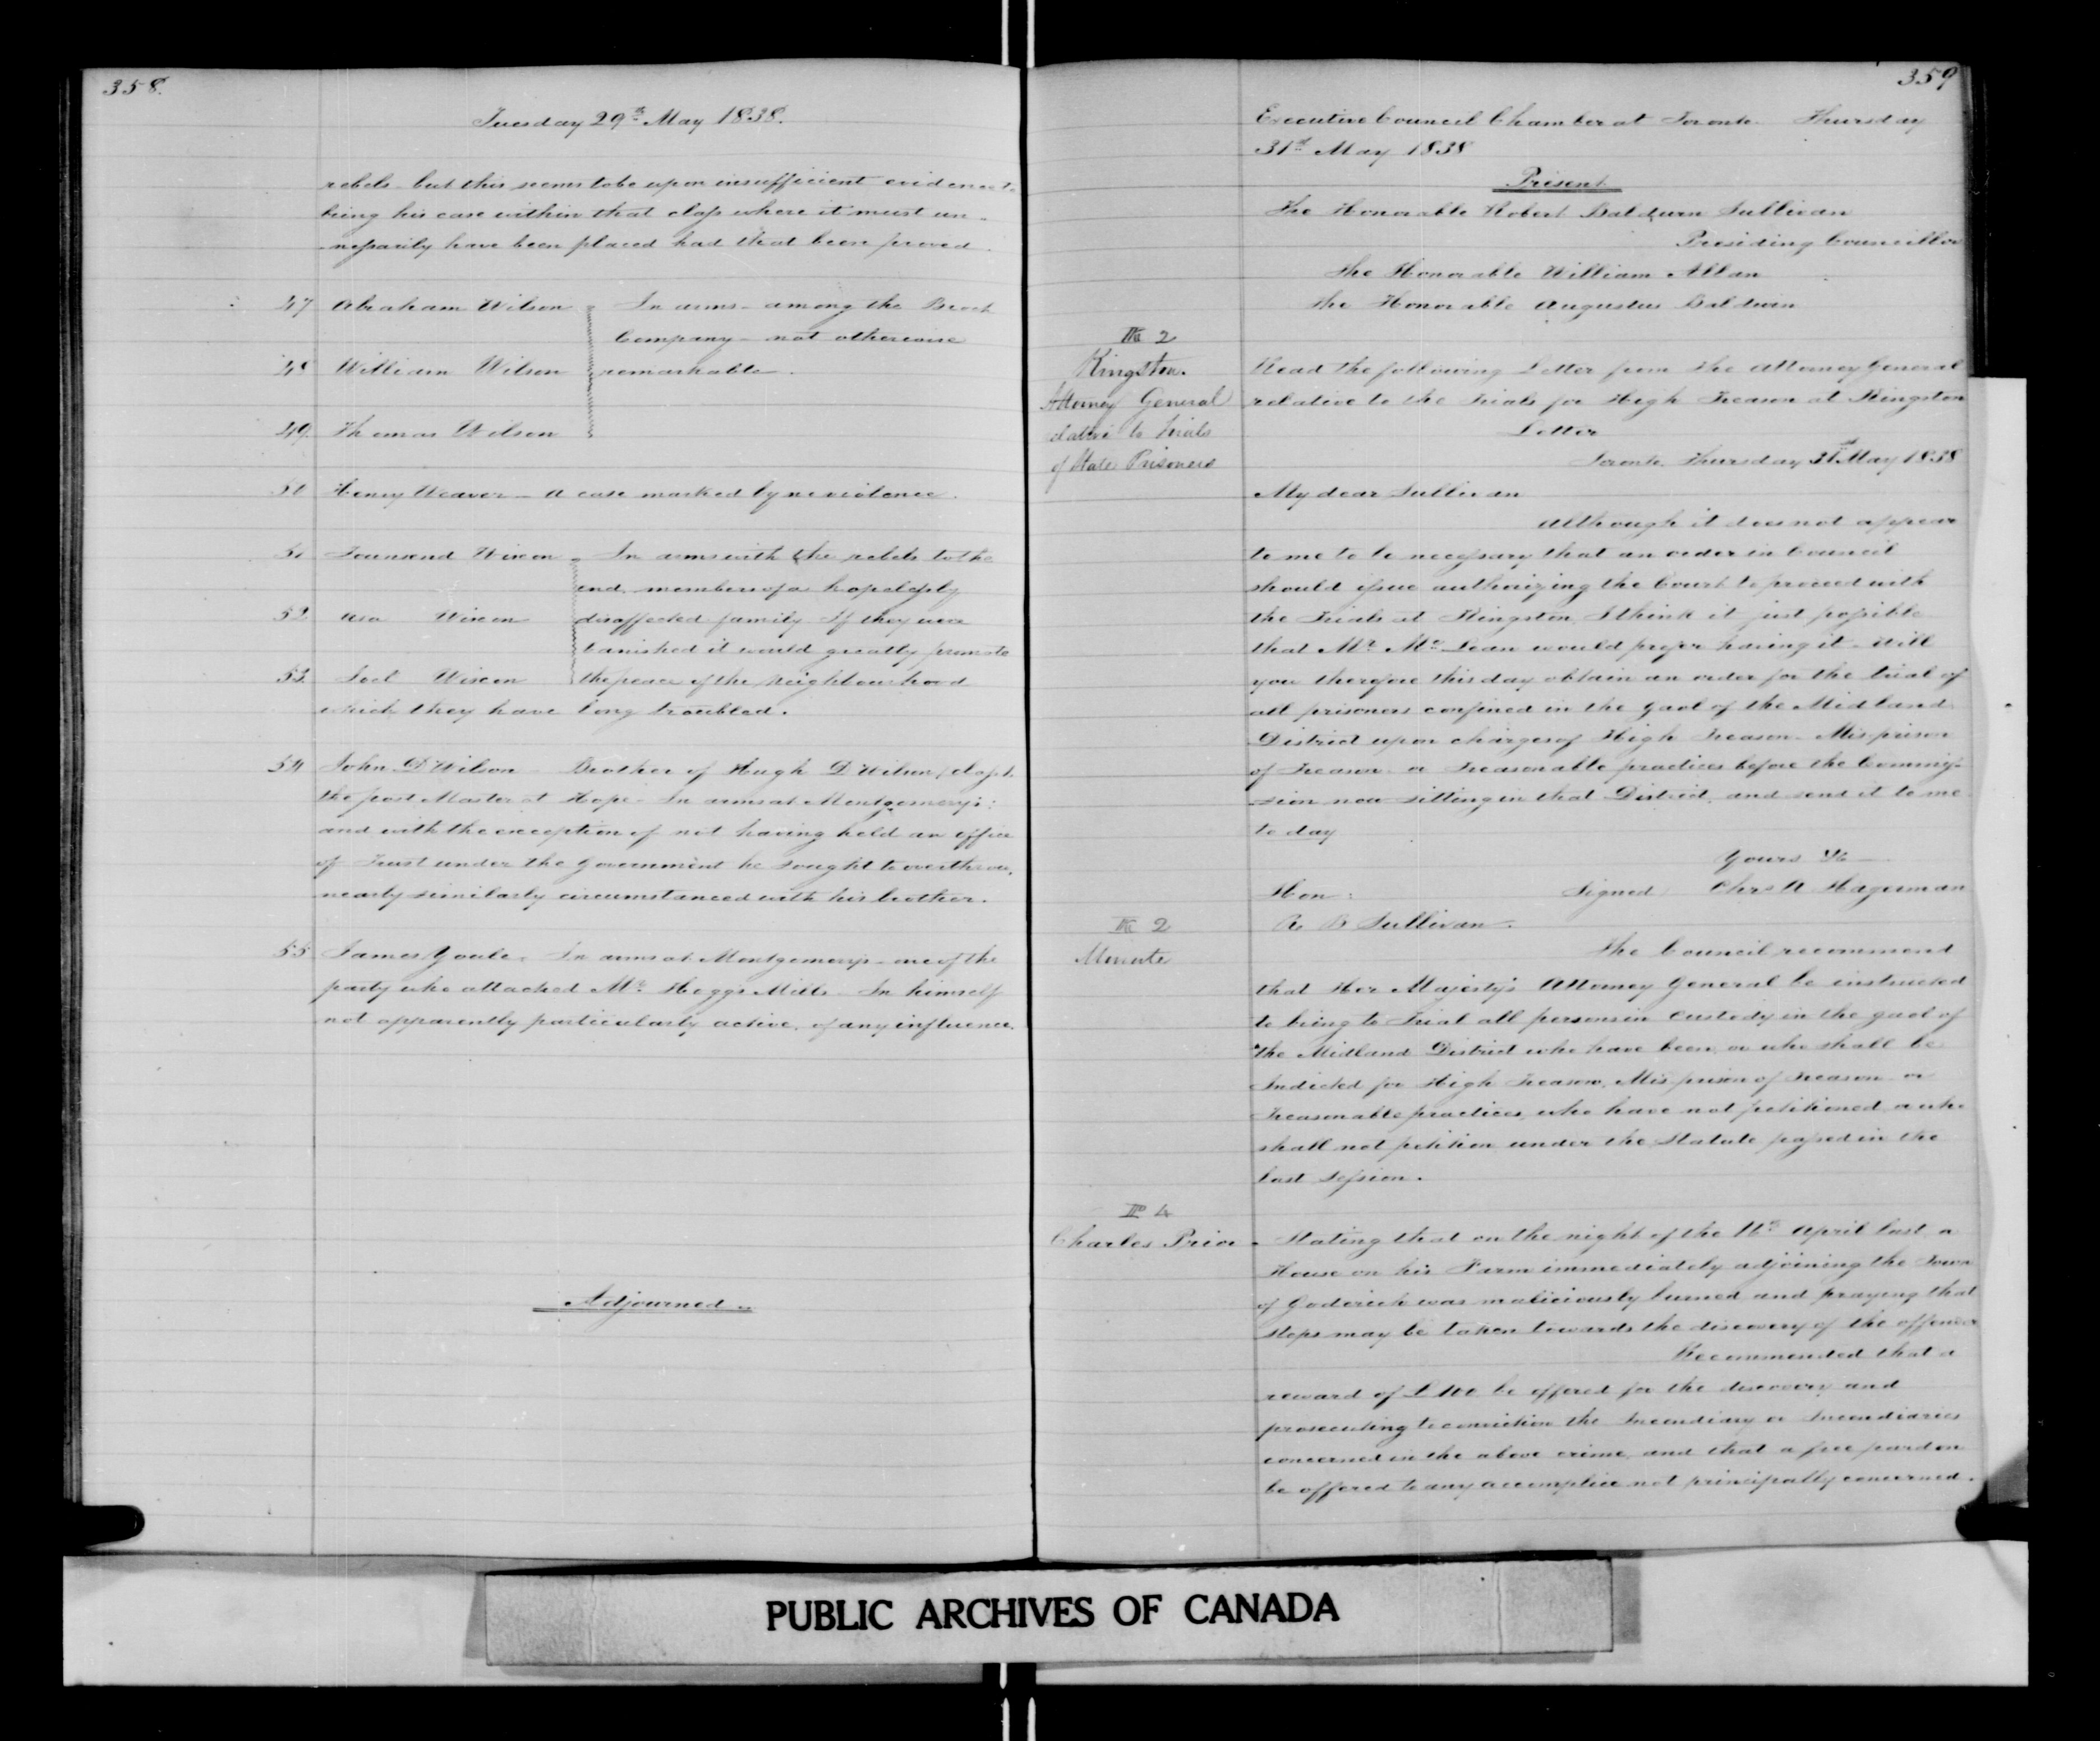 358.
Tuesday 29th May 1838.
rebels - but this seems to be upon insufficient evidence to
bring his case within that class where it must un-
necessarily have been placed had that been proved.
47 Abraham Wilson In arms - among the Brock
Company - not otherwise
48 William Wilson remarkable.
49. Thomas Wilson
50 Henry Weaver - A case marked by no violence.
51 Townsend Wixon In arms with the rebels to the
end. members of a hopelessly
52 Asa Wixon disaffected family. If they were
banished it would greatly promote
53. Joel Wixon the peace of the Neighbourhood
which they have long troubled.
54 John D Wilson Brother of Hugh D Wilson
the post Master at Hope - In arms at Montgomery's:
and with the exception of not having held an office
of Trust under the Government he sought to overthrow,
nearly similarly circumstanced with his brother.
55 James Youle. In arms at Montgomery's - one of the
party who attacked Mr Hoggs Mills - In himself
not apparently particularly active, of any influence.
Adjourned.
359
Executive Council Chamber at Toronto Thursday
31st May 1838
Present
The Honorable Robert Baldwin Sullivan
Presiding Councillor
The Honorable William Allan
The Honorable Augustus Baldwin
2
Kingston.
Attorney General
relative to Trials
of State Prisoners
Read the following Letter from the Attorney General
relative to the Trials for High Treason at Kingston
Letter
Toronto. Thursday 31st May 1838
My dear Sullivan
Although it does not appear
to me to be necessary that an order in Council
should issue authorizing the Court to proceed with
the Trials at Kingston, I think it just possible
that Mr McLean would prefer having it - Will
you therefore this day obtain an order for the trial of
all prisoners confined in the Gaol of the Midland
District upon charges of High Treason - Misprison
of Treason or Treasonable practices before the Commis-
sion now sitting in that District, and send it to me
to day
Yours &c
Hon: Signed Chrs A Hagerman
R B Sullivan.
2
Minute
The Council recommend
that Her Majesty's Attorney General be instructed
to bring to Trial all persons in Custody in the gaol of
the Midland District who have been, or who shall be
Indicted for High Treason, Misprison of Treason or
Treasonable practices, who have not petitioned or who
shall not petition under the Statute passed in the
last Session.
4
Charles Prior. Stating that on the night of the 11th April last a
House on his Farm immediately adjoining the Town
of Goderich was maliciously burned and praying that
steps may be taken towards the discovery of the offender
Recommended that a
reward of be offered for the discovery and
prosecuting to conviction the Incendiary or Incendiaries
concerned in the above crime, and that a free pardon
be offered to any accomplice not principally concerned.
PUBLIC ARCHIVES OF CANADA